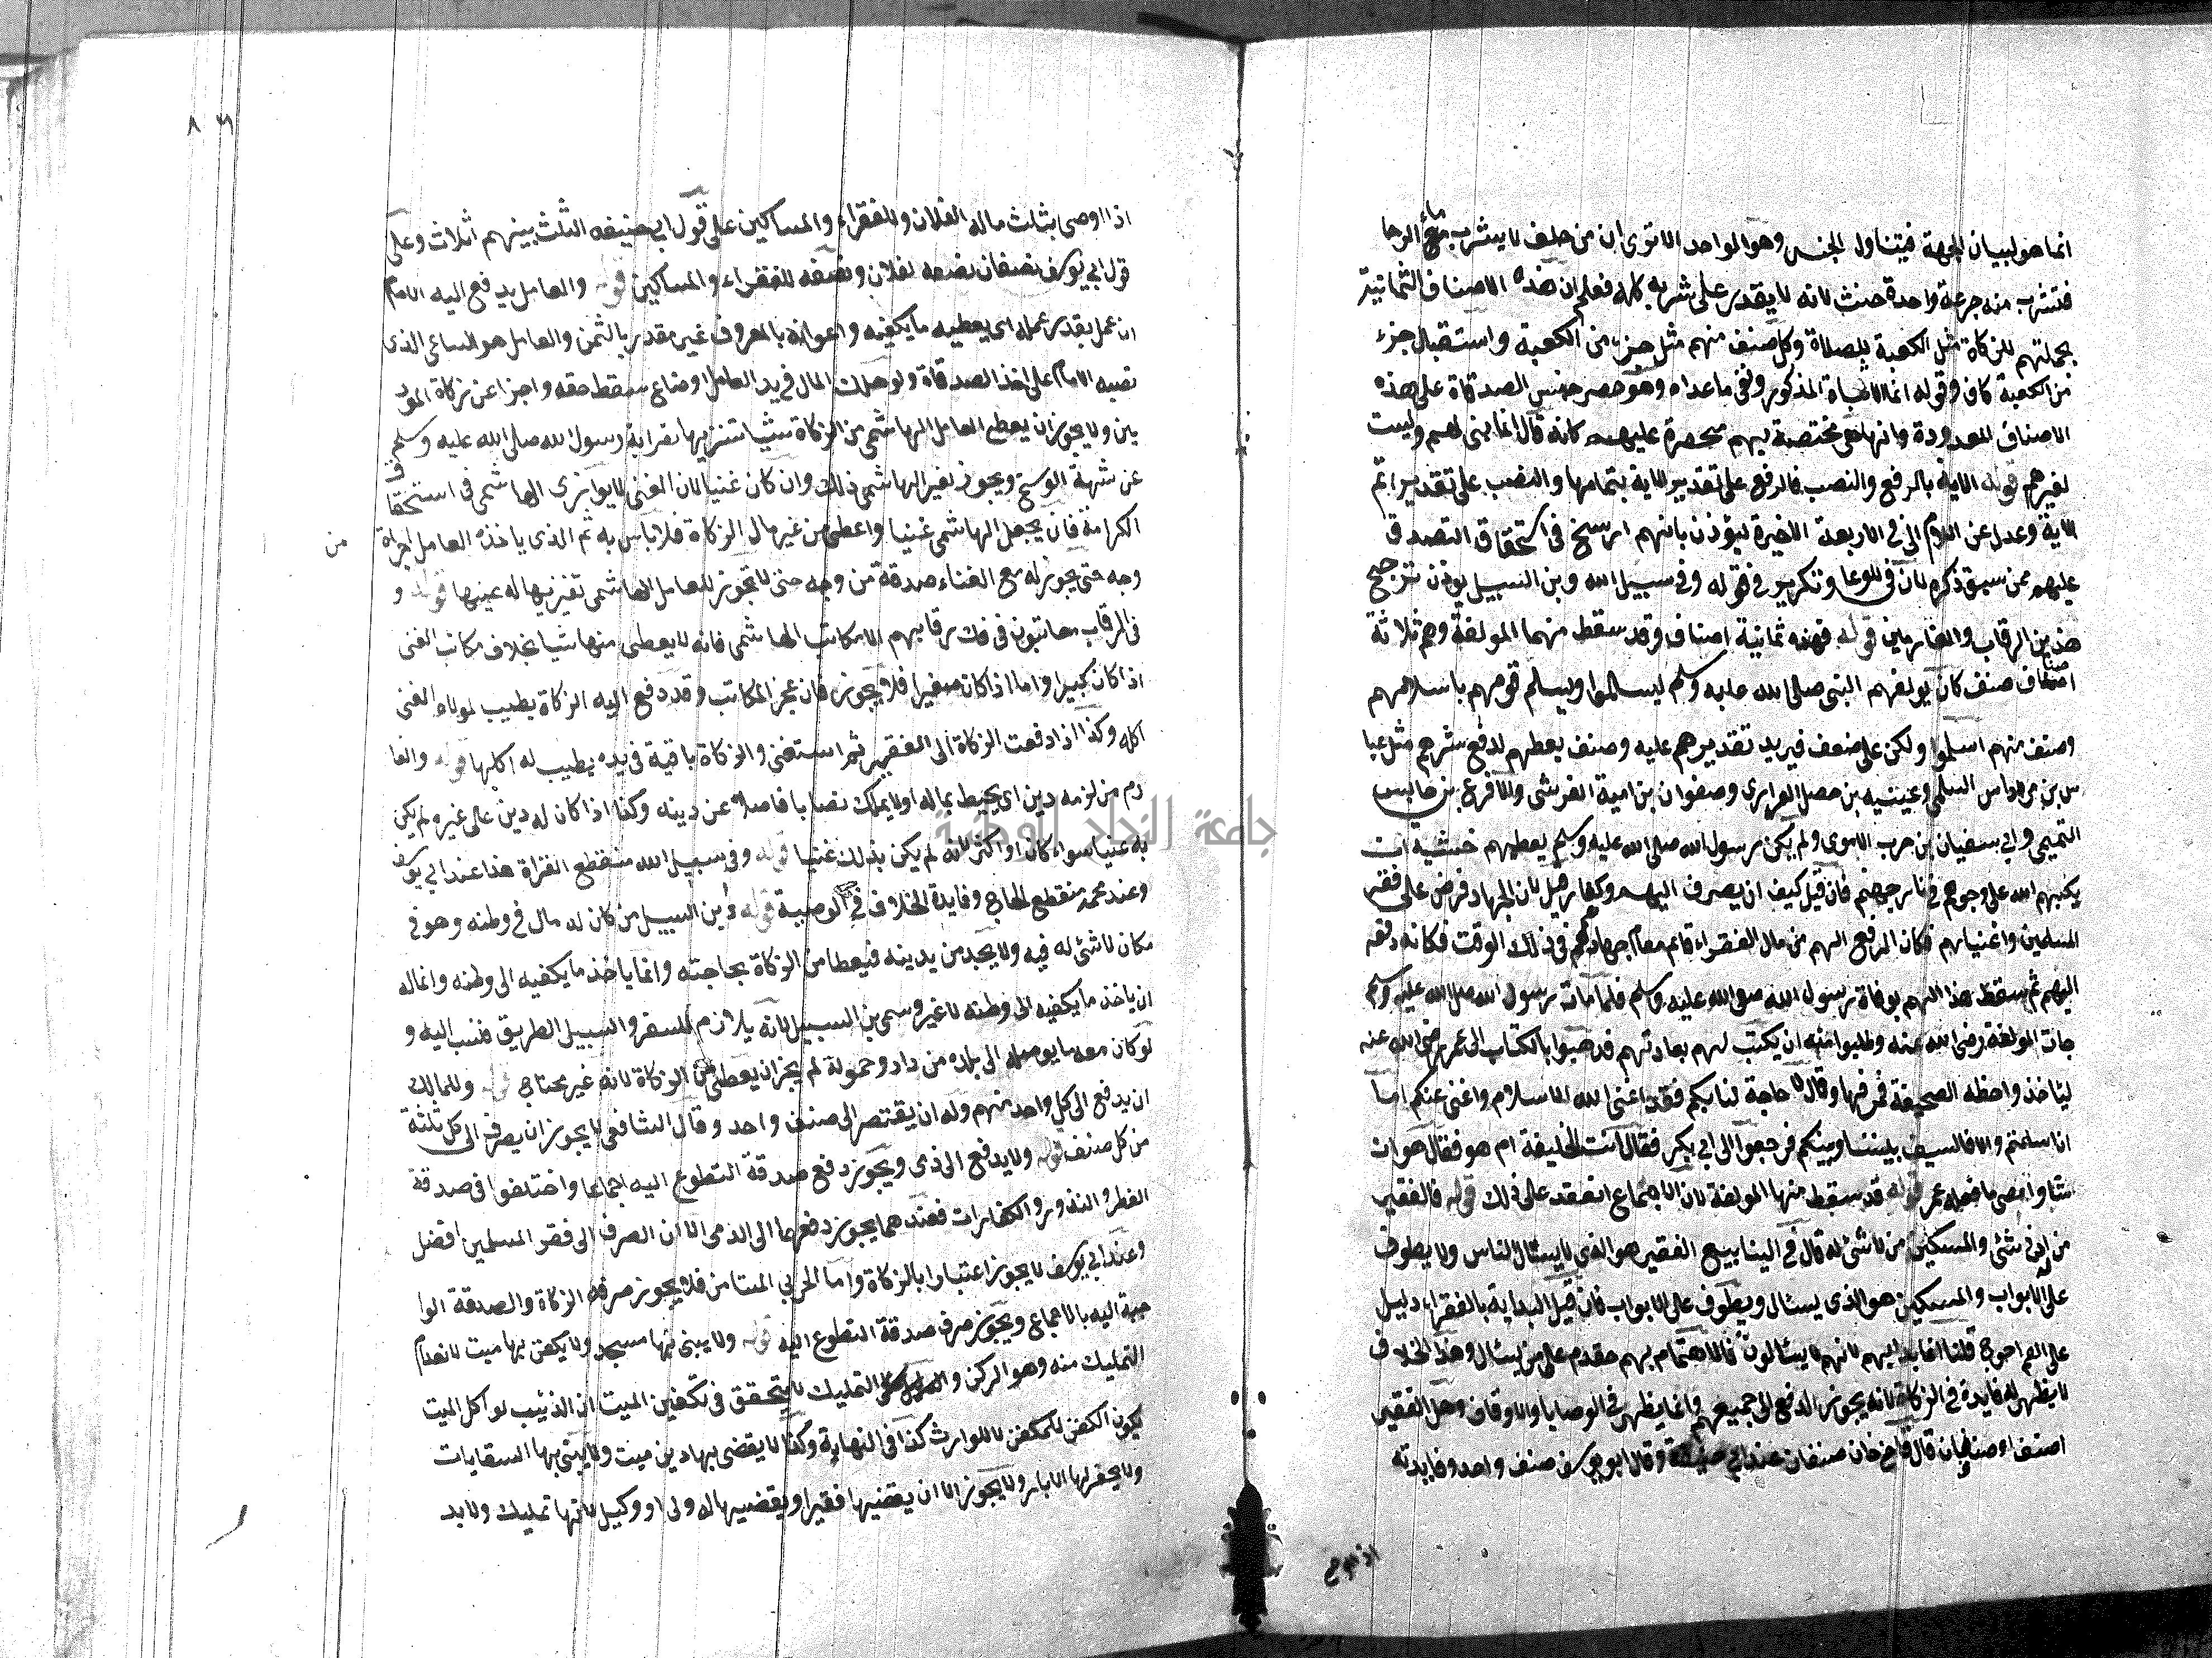 انما هو لبيان الجهة فيتناول الجنس وهو الواحد الا ترى ان من حلف لا يشرب ماء الرحا
فشرب منه جرعة واحدة حنث لانه لا يقدر على شربه كله فعلم ان هذه الاصناف الثمانية
بجملتهم للزكاة مثل الكعبة للصلاة وكل صنف منهم مثل جزء من الكعبة واستقبال جزء
من الكعبة كاف وقوله انما لاثبات المذكور ونفي ما عداه وهو حصر جنس الصدقاة على هذه
الاصناف المعدودة وانها مختصة بهم منحصرة عليهم كانه قال انما هي لهم وليست
لغيرهم قوله الاية بالرفع والنصب فالرفع على تقدير الاية بتمامها والنصب على تقدير اتم
الاية وعدل عن اللام الى في الاربعة الاخيرة ليؤذن بانهم ارسخ في استحقاق التصدق
عليهم ممن سبق ذكره لان في للوعا وتكرير في قوله وفي سبيل الله وبن السبيل يوذن ترجيح
هذين الرقاب والغارمين قوله فهذه ثمانية اصناف وقد سقط منهما المولفة وهم ثلاثة
اصناف صنف كان يولفهم النبي صلى الله عليه وسلم ليسلموا ويسلم قومهم باسلامهم
وصنف منهم اسلموا ولكن على ضعف فيريد تقديرهم عليه وصنف يعطهم لدفع شرهم مثل عبا
س بن مرداس السلمي وعيينه بن حصن الفزاري وصفوان بن امية القرشي والاقرع بن حابس
التميمي وابي سفيان بن حرب الاموى ولم يكن رسول الله صلى الله عليه وسلم يعطيهم خشية ان
يكبهم الله على وجوههم في نار جهنم فان قيل كيف ان يصرف اليهم وكفار هيل لان الجهاد فرض على فقر
المسلمين واغنياهم فكان الدفع الهم من مال الفقراء قائم مقام جهادهم في ذلك الوقت فكانه دفعه
اليهم ثم سقط هذا السهم بوفاة رسول الله صلى الله عليه وسلم فلما مات رسول الله صلى الله عليه وسلم
جات المولفة رضي الله عنه وطلبوا منه ان يكتب لهم بعادتهم فذهبوا بالكتاب الى عمر رضي الله عنه
لياخذ واخطه الصحيفة فمزقها وقال لا حاجة لنا بكم فقد اغنى الله الاسلام واغنى عنكم اما
ان اسلمتم والا فالسيف بيننا وبينكم فرجعوا الى ابي بكر فقالا انت الخليفة ام هو فقال هو ان
شا وامضى ما فعله عمر قوله قد سقط منها المولفة لان الاجماع انعقد على ذلك قوله فالفقير
من له ادنى شئ والمسكين من لا شئ له قال في الينابيع الفقير هو الذي لا يسئال الناس ولا يطوف
على الابواب والمسكين هو الذى يسئال ويطوف على الابواب فان قيل البداية بالفقراء دليل
على انهم احوج قلنا انما بدا بهم لانهم لا يسئالون فالاهتمام بهم مقدم على من يسئال وهذا الخلاف
لا يظهر له فايدة في الزكاة لانه يجوز الدفع الى جميعهم وانما يظهر في الوصايا والاوقاف وهل الفقير
صنف او صنفان قال قاضي خان صنفان عند ابي حنيفة وقال ابو يوسف صنف واحد وفايدته
اذا اوصى
اذا اوصى بثلث ماله لفلان وللفقراء والمساكين على قول ابي حنيفه الثلث بينهم اثلاث وعلى
قول ابي يوسف نصفان نصفه لفلان ونصفه للفقراء والمساكين قوله والعامل يدفع اليه الامام
ان عمل بقدر عمله اى يعطيه ما يكفيه واعوانه بالمعروف غير مقدر بالثمن والعامل هو الساعي الذى
نصبه الامام على اخذ الصدقاة ولو هلك المال في يد العامل او ضاع سقط حقه واجزا عن زكاة المود
يين ولا يجوز ان يعطي العامل الهاشمي من الزكاة شيا تنزيها لقرابة رسول الله صلى الله عليه وسلم
عن شبهة الوسخ ويجوز لغير الهاشمي ذلك وان كان غنيا لان الغني لا يوازى الهاشمي في استحقاق
الكرامة فان يجعل الهاشمي غنيا واعطى من غير مال الزكاة فلا باس به ثم الذى ياخذه العامل اجراة من
وجه حتى يجوز له مع الغناء صدقة من وجه حتى لا تجوز للعامل الهاشمي تفزيها له عينها قوله و
في الرقاب معاتبون في فك رقابهم الا مكاتب الهاشمي فانه لا يعطى منها شيا بخلاف مكاتب الغني
اذا كان كبيرا واما اذا كان صغيرا فلا يجوز فان عجز المكاتب وقد دفع اليه الزكاة يطيب لمولاه الغنى
اكله وكذا اذا دفعت الزكاة الى الفقير ثم استغنى والزكاة باقية في يده يطيب له اكلها قوله والغا
رم من لزمه دين اى يحيط بماله او لا يملك نصابا فاضلا عن دينه وكذا اذا كان له دين على غيره لم يكن
به غنيا سواء كان او اكثر لانه لم يكن بذلك غنيا قوله وفي سبيل الله منقطع الغزاة هذا عند ابي يوسف
وعند محمد منقطع الحاج وفايدة الخلاف في الوصية قوله وبن السبيل من كان له مال في وطنه وهو في
مكان لا شئ له فيه ولا يجد من يدينه فيعطا من الزكاة بحاجته وانما ياخذ ما يكفيه الى وطنه وانما له
ان ياخذ ما يكفيه الى وطنه لا غير وسمي بن السبيل لانه يلازم السفر والسبيل الطريق فنسب اليه و
لو كان معه ما يوصله الى بلده من داد وحمولة لم يجز ان يعطى من الزكاة لانه غير محتاج قوله وللمالك
ان يدفع الى كل واحد منهم وله ان يقتصر الى صنف واحد وقال الشافعي لا يجوز ان يصرف الى كل ثلثة
من كل صنف قوله ولا يدفع الى ذمى ويجوز دفع صدقة التطوع اليه اجماعا واختلفوا في صدقة
الفطر والنذور والكفارات فعندهما يجوز دفعها الى الذمى الا ان الصرف الى فقر المسلمين افضل
وعند ابي يوسف لا يجوز اعتبارا بالزكاة واما الحربي المستامن فلا يجوز صرف الزكاة والصدقة الوا
جبة اليه بالاجماع ويجوز صرف صدقة التطوع اليه قوله ولا يبنى بها مسجد ولا يكفن بها ميت لانعدام
التمليك منه وهو الركن والدليل على التمليك لا يتحقق في تكفين الميت ان الذئب لو اكل الميت
يكون الكفن للمكفن لا للوارث كذا في النهاية وكذا لا يقضى بها دين ميت ولا يبنى بها السقايات
ولا يحفر بها الابار ولا يجوز الا ان يقضيها فقيرا ويقضيها له ولى او وكيل لانها تمليك ولا بد
جامعة النجاح الوطنية